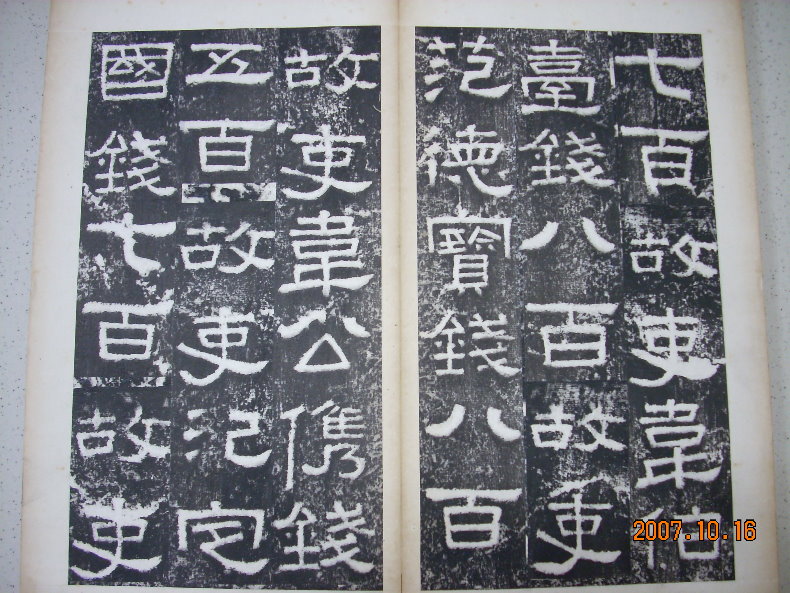 七百故吏韋伯
臺錢八百故吏
范德寶錢八百
故吏韋公儁錢
五百故吏氾定
國錢七百故吏
2007.10.16